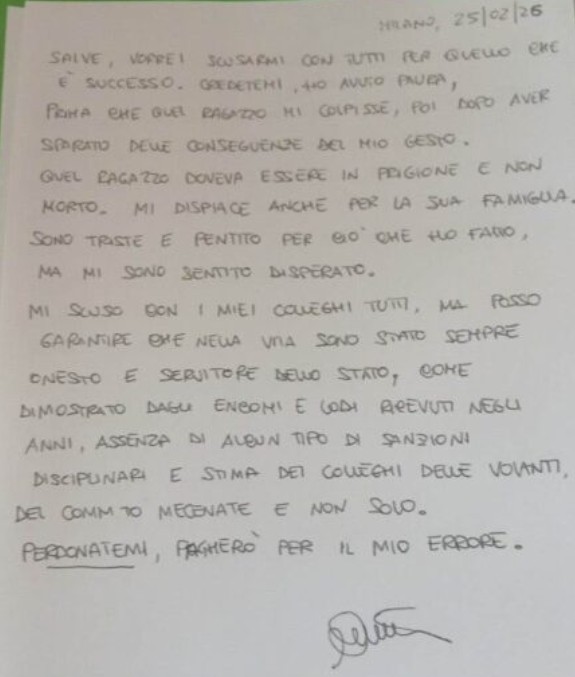 MILANO, 25/02/26
SALVE, VORREI SCUSARMI CON TUTTI PER QUELLO CHE
E' SUCCESSO. CREDETEMI, HO AVUTO PAURA,
PRIMA CHE QUEL RAGAZZO MI COLPISSE, POI DOPO AVER
SPARATO DELLE CONSEGUENZE DEL MIO GESTO.
QUEL RAGAZZO DOVEVA ESSERE IN PRIGIONE E NON
MORTO. MI DISPIACE ANCHE PER LA SUA FAMIGLIA.
SONO TRISTE E PENTITO PER CIO' CHE HO FATTO,
MA MI SONO SENTITO DISPERATO.
MI SCUSO CON I MIEI COLLEGHI TUTTI, MA POSSO
GARANTIRE CHE NELLA VITA SONO STATO SEMPRE
ONESTO E SERVITORE DELLO STATO, COME
DIMOSTRATO DAGLI ENCOMI E LODI RICEVUTI NEGLI
ANNI, ASSENZA DI ALCUN TIPO DI SANZIONI
DISCIPLINARI E STIMA DEI COLLEGHI DELLE VOLANTI,
DEL COMM.TO MECENATE E NON SOLO.
PERDONATEMI, PAGHERÒ PER IL MIO ERRORE.